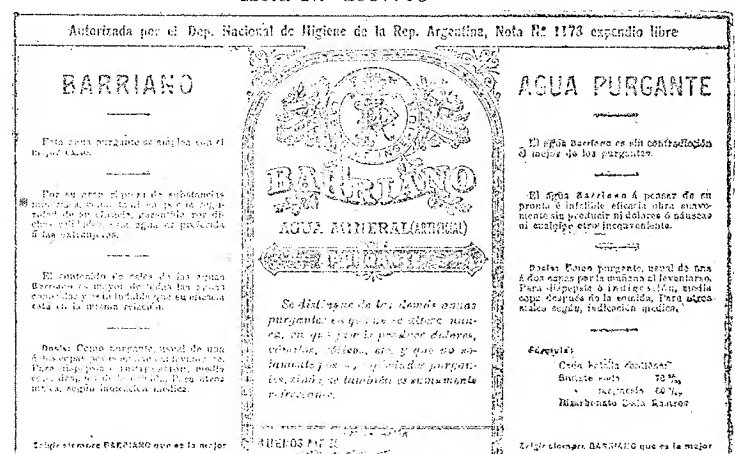 Autorizada por el Dep. Nacional de Higiene de la Rep. Argentina, Nota Nº 1173 expendio libre
BARRIANO
Esta agua purgante se emplea con el
mejor éxito.
Por su gran riqueza de substancias
á las extranjeras.
El contenido de sales de las aguas
Barriano es mayor de todas las aguas
conocidas y es indudable que su eficacia
está en la misma relación.
Dosis: Como purgante, usual de una
á dos copas por la mañana al levantarse.
Para dispepsia ó indigestión, media
copa después de la comida. Para otros
males, según indicación médica.
Exigir siempre BARRIANO que es la mejor
BARRIANO
AGUA MINERAL (ARTIFICIAL)
PURGANTE
Se distingue de las demás aguas
purgantes en que no se altera nun-
ca, en que no produce dolores,
vómitos, cólicos, etc. y que no so-
lamente
tes, sinó que también es sumamente
refrescante.
BUENOS AIRES
AGUA PURGANTE
El agua Barriano es sin contradicción
el mejor de los purgantes.
El agua Barriano á pensar de su
pronta é infalible eficacia obra suave-
mente sin producir ni dolores ó náuseas
ni cualquier otro inconveniente.
Dosis: Como purgante, usual de una
á dos copas por la mañana al levantarse.
Para dispepsia ó indigestión, media
copa después de la comida. Para otros
males según, indicación médica.
Fórmula:
Cada botella contiene:
Sulfato soda 70 ‰
magnesia 60 ‰
Bicarbonato Soda
Exigir siempre BARRIANO que es la mejor